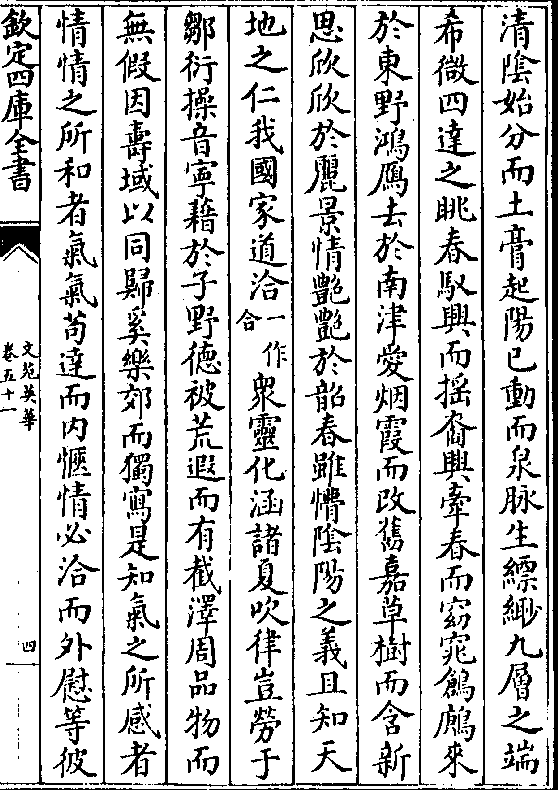 清陰始分而土膏起陽已動而泉脉生縹緲九層之端
希微四達之眺春馭興而摇裔興牽春而窈窕鶬鶊來
於東野鴻鴈去於南津愛烟霞而改舊嘉草樹而含新
思欣欣於麗景情艷艷於韶春雖懵陰陽之義且知天
地之仁我國家道洽一作合衆靈化涵諸夏吹律豈勞于
鄒衍操音寧藉於子野德被荒遐而有截澤周品物而
無假因壽域以同歸奚樂郊而獨寫是知氣之所感者
情情之所和者氣氣苟達而内愜情必洽而外慰等彼
欽定四庫全書
文苑英華
卷五十一
四